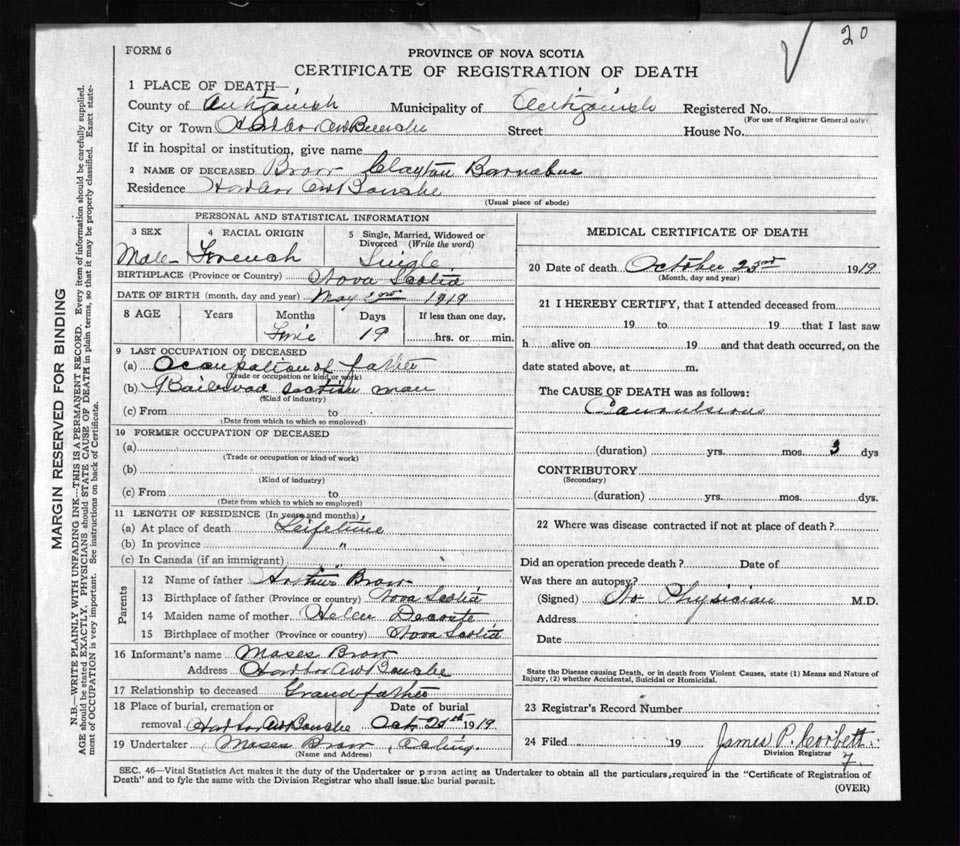 20
FORM 6
PROVINCE OF NOVA SCOTIA
CERTIFICATE OF REGISTRATION OF DEATH
1 PLACE OF DEATH—
County of Antigonish Municipality of Antigonish Registered No.
(For use of Registrar General only)
City or Town Harbor Aw Bouche Street House No.
If in hospital or institution, give name
2 NAME OF DECEASED Brow Clayton Barnabus
Residence Harbor Aw Boushe
(Usual place of abode)
PERSONAL AND STATISTICAL INFORMATION
3 SEX 4 RACIAL ORIGIN 5 Single, Married, Widowed or
Divorced (Write the word)
Male French Single
BIRTHPLACE (Province or Country) Nova Scotia
DATE OF BIRTH (month, day and year) May 1919
8 AGE Years Months Days If less than one day,
19 hrs. or min.
9 LAST OCCUPATION OF DECEASED
(a) Ocaupation of father
(Trade or occupation or kind of work)
(b) Railroad man
(Kind of industry)
(c) From to
(Date from which to which so employed)
10 FORMER OCCUPATION OF DECEASED
(a)
(Trade or occupation or kind of work)
(b)
(Kind of industry)
(c) From to
(Date from which to which so employed)
11 LENGTH OF RESIDENCE (In years and months)
(a) At place of death Leifetime
(b) In province "
(c) In Canada (if an immigrant)
Parents
12 Name of father Arthur Brow
13 Birthplace of father (Province or country) Nova Scotia
14 Maiden name of mother Helen Decoste
15 Birthplace of mother (Province or country) Nova Scotia
16 Informant's name Moses Brow
Address Harbor Aw Boushe
17 Relationship to deceased Grandfather
18 Place of burial, cremation or Date of burial
removal Harbor Aw Boushe Oct 1919
19 Undertaker Moses Brow Acting.
(Name and Address)
MEDICAL CERTIFICATE OF DEATH
20 Date of death October 23rd 1919
(Month, day and year)
21 I HEREBY CERTIFY, that I attended deceased from
19 to 19 that I last saw
h alive on 19 and that death occurred, on the
date stated above, at m.
The CAUSE OF DEATH was as follows:
Convulsions
(duration) yrs. mos. 3 dys
CONTRIBUTORY
(Secondary)
(duration) yrs. mos. dys.
22 Where was disease contracted if not at place of death?
Did an operation precede death? Date of
Was there an autopsy?
(Signed) No Physician M.D.
Address
Date
State the Disease causing Death, or in death from Violent Causes, state (1) Means and Nature of
Injury, (2) whether Accidental, Suicidal or Homicidal.
23 Registrar's Record Number
24 Filed 19 James P. Corbett
Division Registrar
7
SEC. 46—Vital Statistics Act makes it the duty of the Undertaker or person acting as Undertaker to obtain all the particulars required in the "Certificate of Registration of
Death" and to fyle the same with the Division Registrar who shall issue the burial permit.
(OVER)
MARGIN RESERVED FOR BINDING
N.B.—WRITE PLAINLY WITH UNFADING INK—THIS IS A PERMANENT RECORD. Every item of information should be carefully supplied.
AGE should be stated EXACTLY. PHYSICIANS should STATE CAUSE OF DEATH in plain terms, so that it may be properly classified. Exact state-
ment of OCCUPATION is very important. See instructions on back of Certificate.